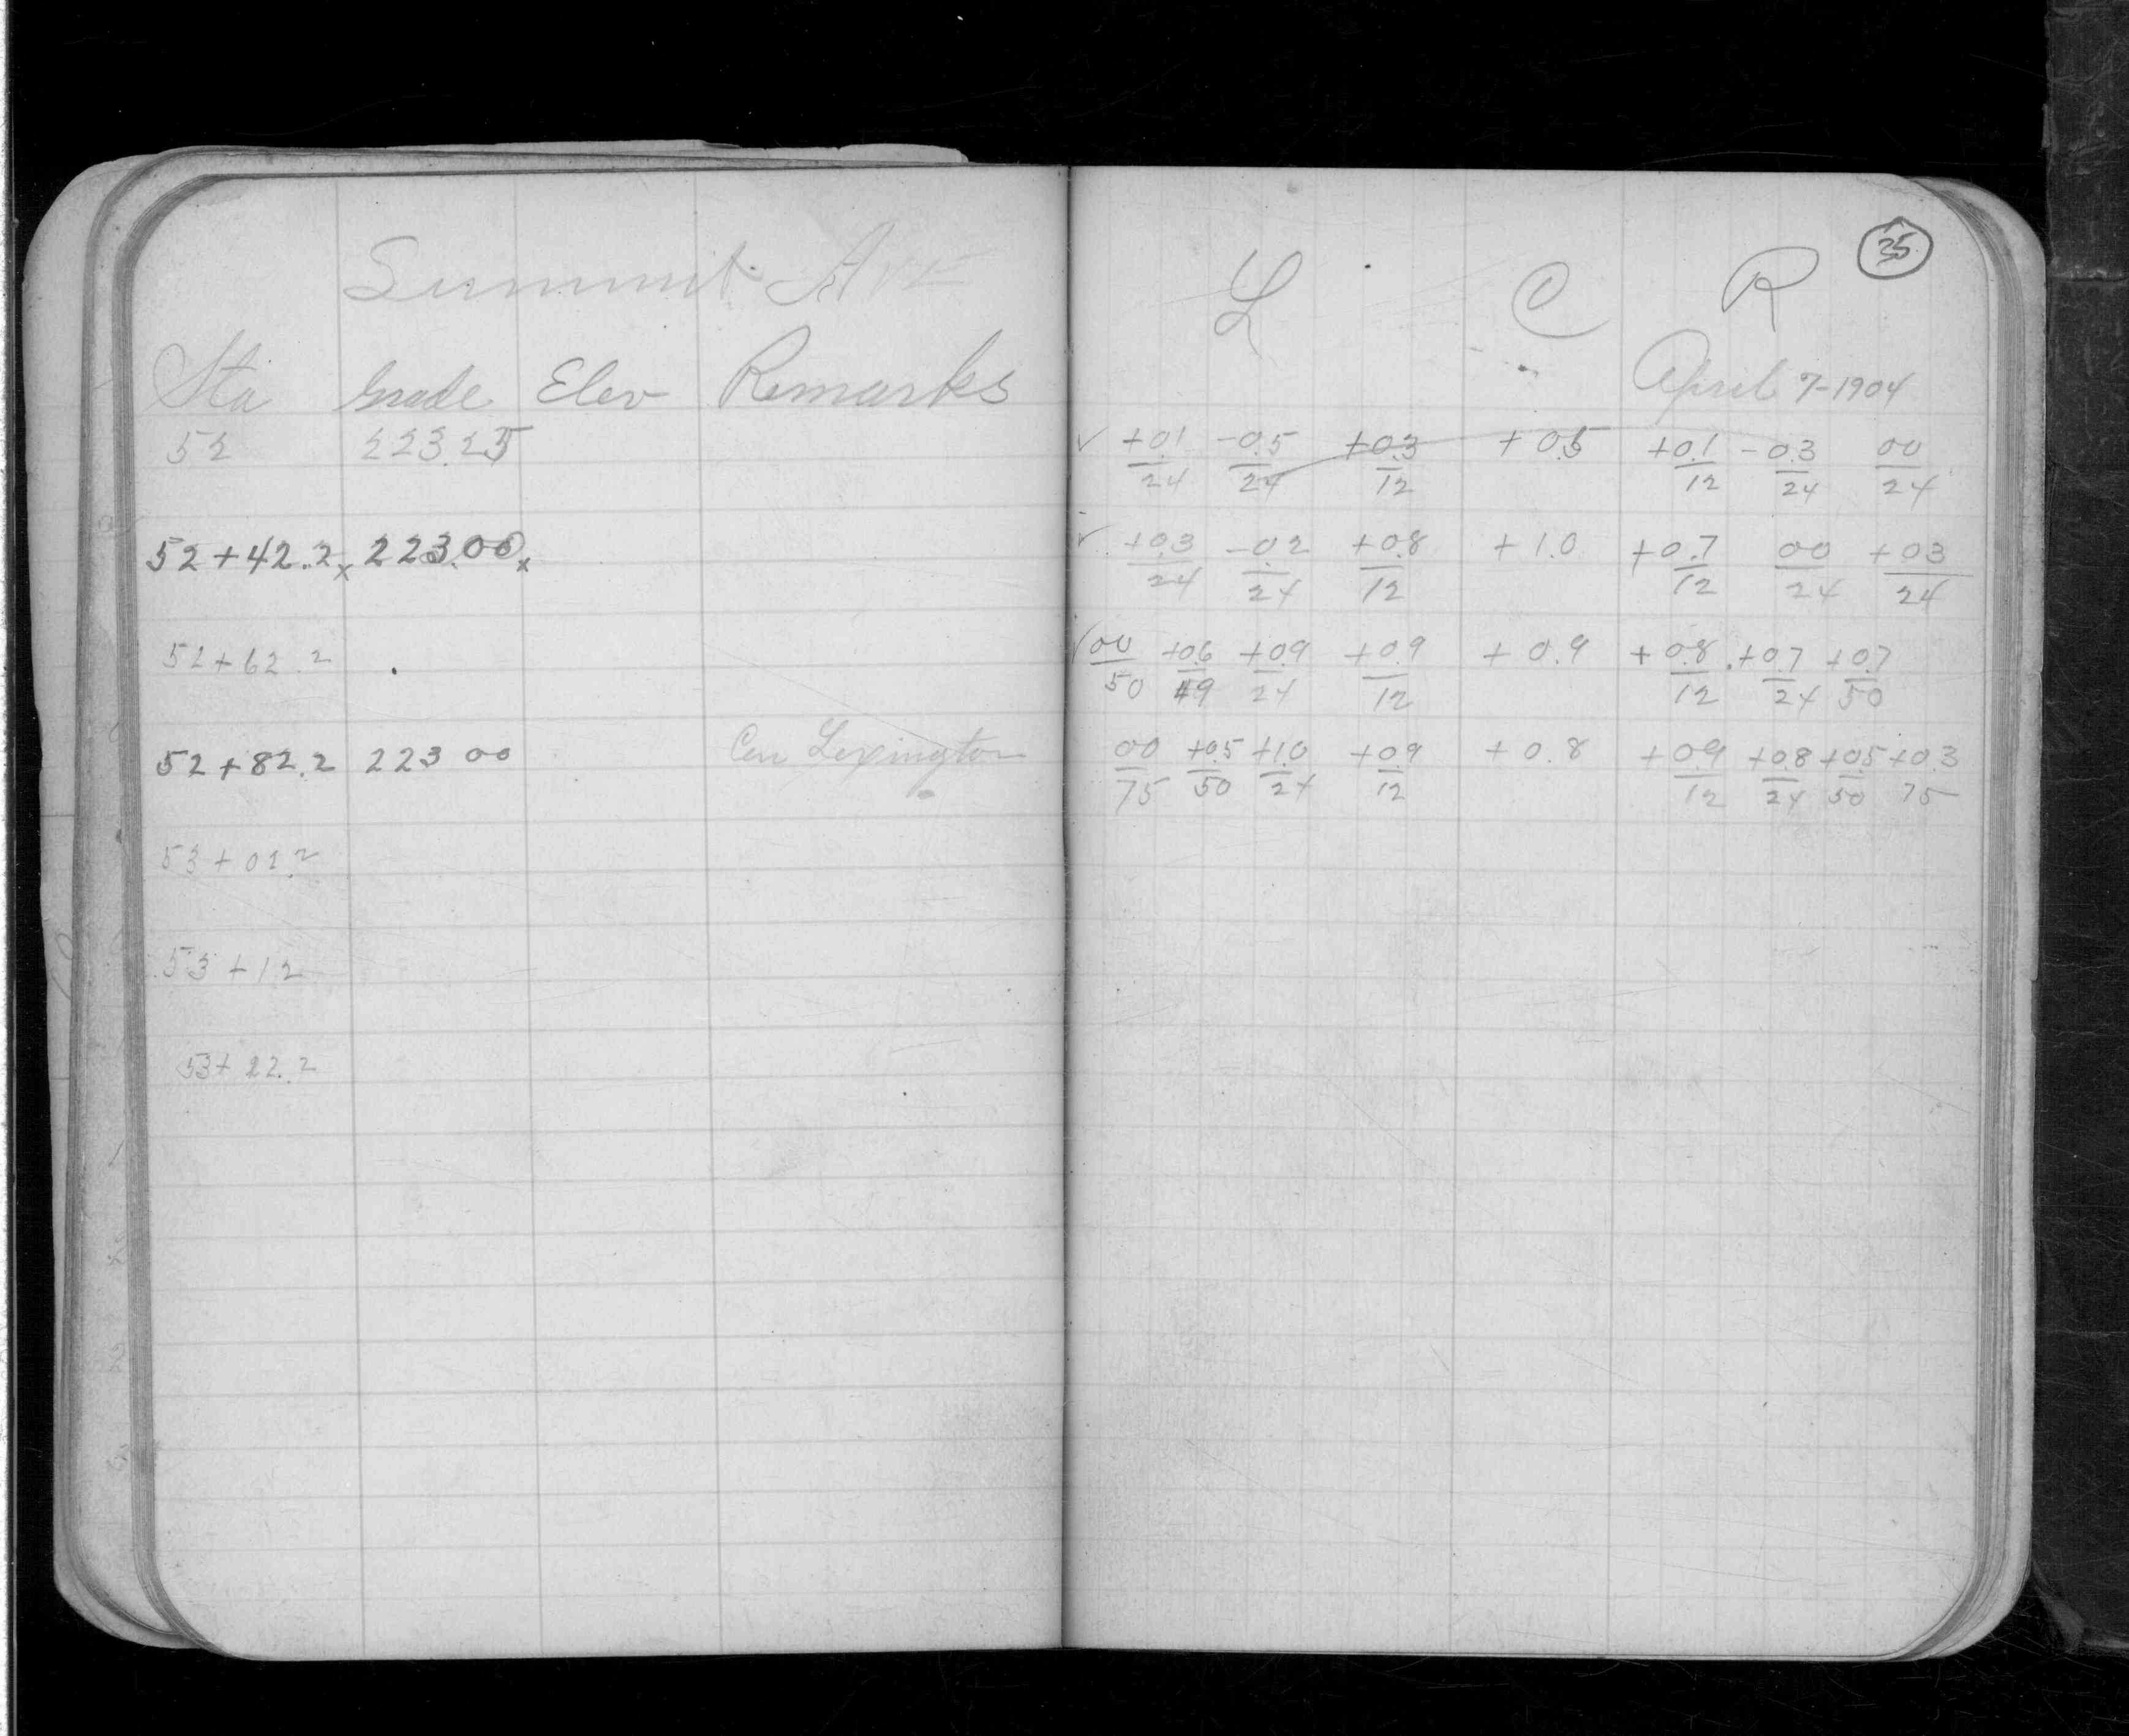 Summit Ave
Sta Grade Elev Remarks
52 223.25
52+42.2 x 223.00 x
52+62.2
52+82.2 223 00 Cen Lexington
53+02.2
53+12
53+22.2
35
L C R
April 7-1904
✓ +0.1/24 -0.5/24 +0.3/12 +0.5 +0.1/12 -0.3/24 00/24
✓ +0.3/24 -0.2/24 +0.8/12 +1.0 +0.7/12 00/24 +03/24
✓ 00/50 +0.6/49 +0.9/24 +0.9/12 +0.9 +0.8/12 +0.7/24 +0.7/50
00/75 +0.5/50 +1.0/24 +0.9/12 +0.8 +0.9/12 +0.8/24 +0.5/50 +0.3/75